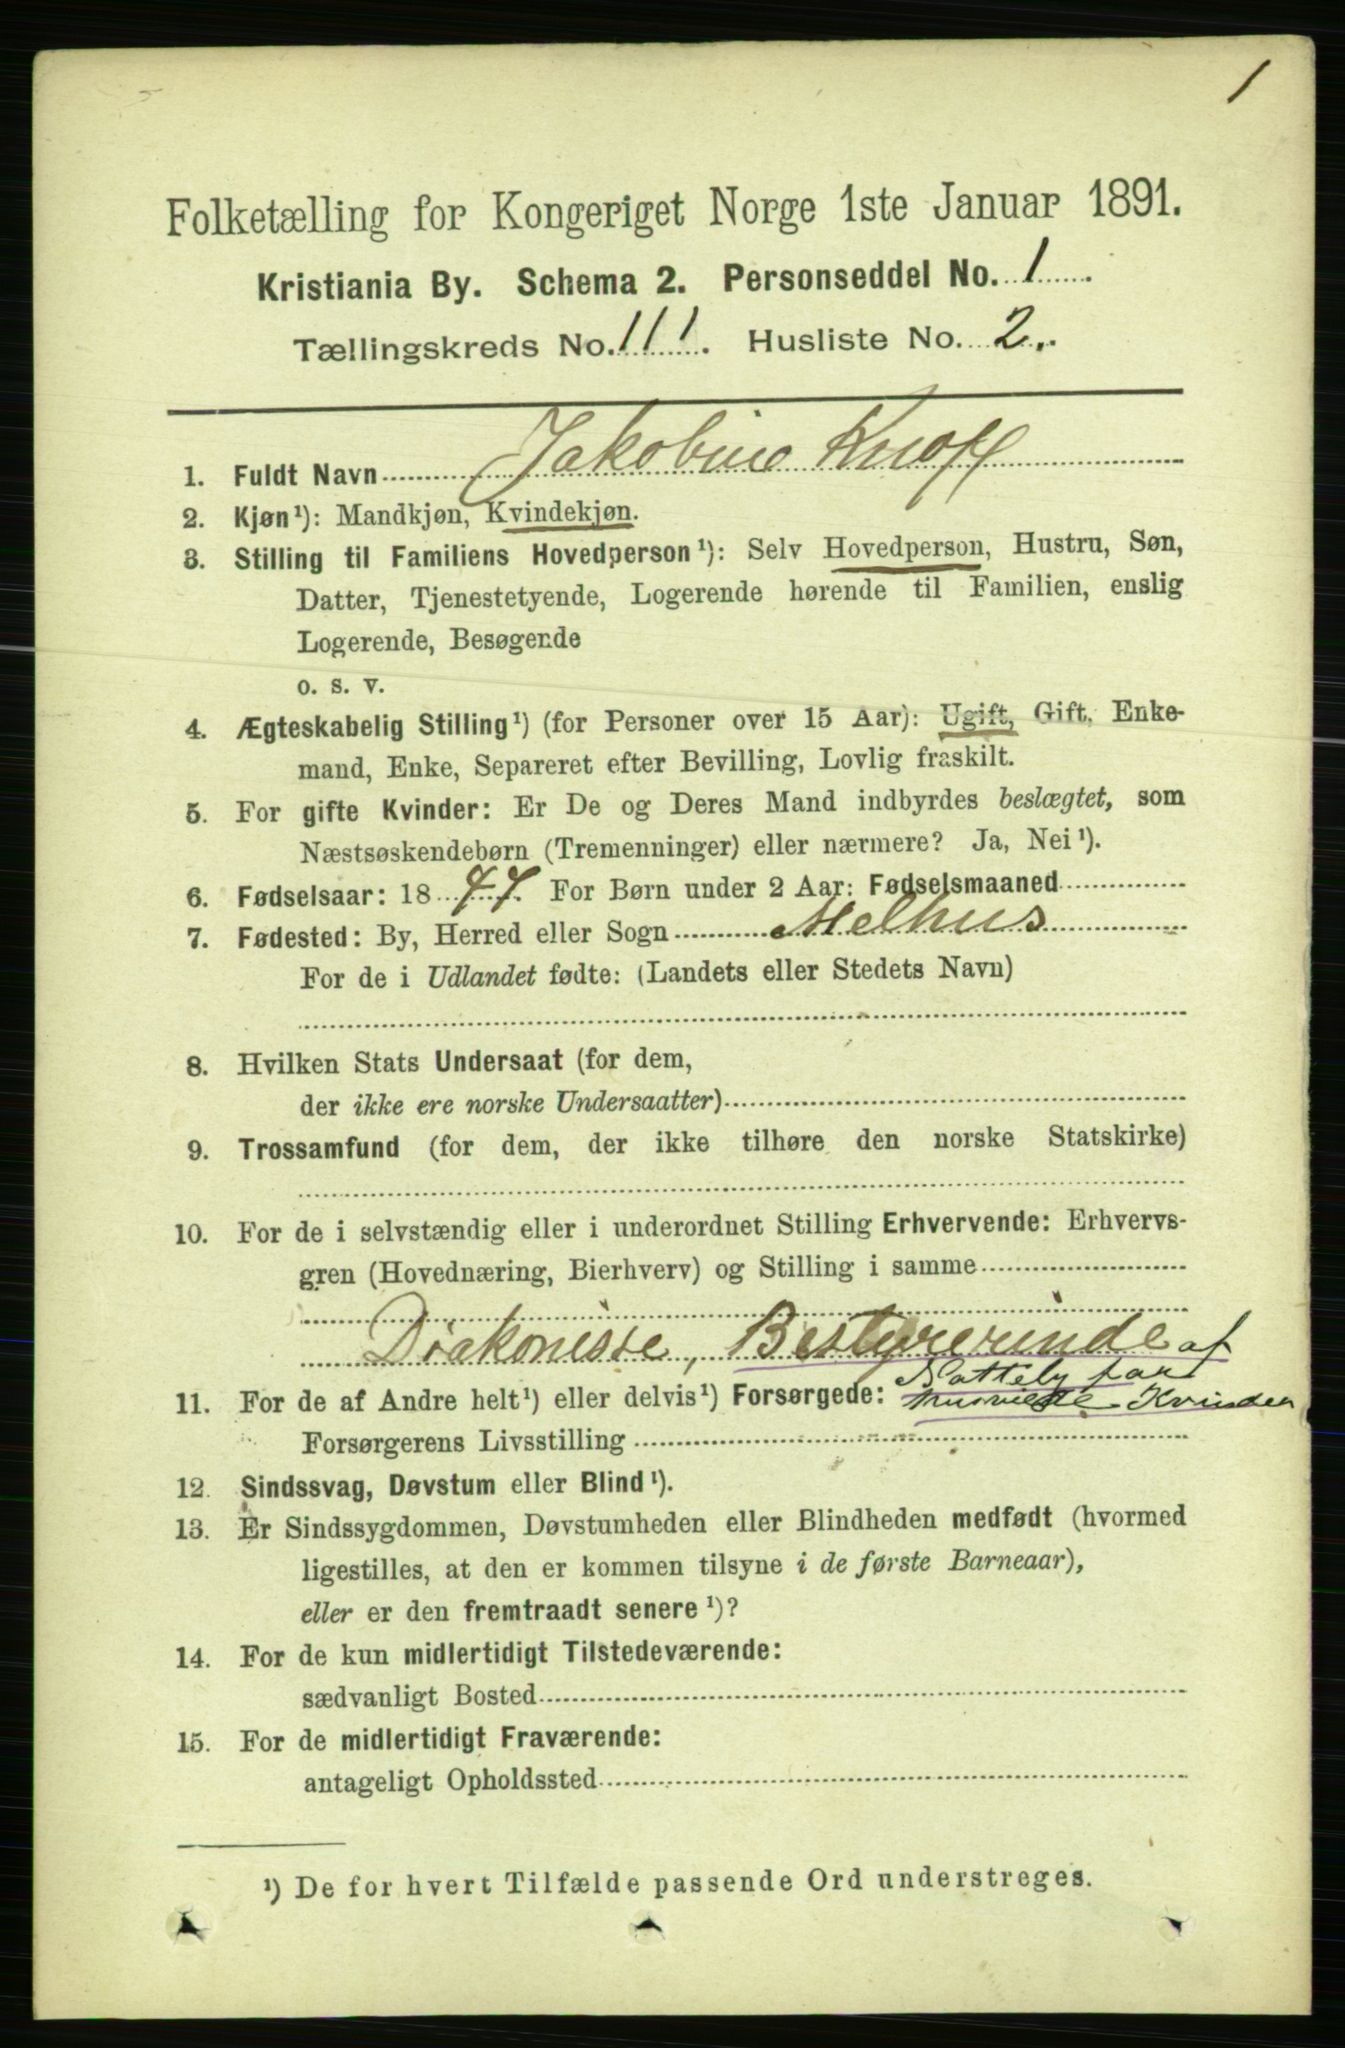 1
Folketælling for Kongeriget Norge 1ste Januar 1891.
Kristiania By. Schema 2. Personseddel No. 1
Tællingskreds No. 111. Husliste No. 2.
1. Fuldt Navn Jakobine Knoff
2. Kjøn¹): Mandkjøn, Kvindekjøn.
3. Stilling til Familiens Hovedperson¹): Selv Hovedperson, Hustru, Søn,
Datter, Tjenestetyende, Logerende hørende til Familien, enslig
Logerende, Besøgende
o. s. v.
4. Ægteskabelig Stilling¹) (for Personer over 15 Aar): Ugift, Gift, Enke-
mand, Enke, Separeret efter Bevilling, Lovlig fraskilt.
5. For gifte Kvinder: Er De og Deres Mand indbyrdes beslægtet, som
Næstsøskendebørn (Tremenninger) eller nærmere? Ja, Nei¹).
6. Fødselsaar: 18 47. For Børn under 2 Aar: Fødselsmaaned
7. Fødested: By, Herred eller Sogn Melhus
For de i Udlandet fødte: (Landets eller Stedets Navn)
8. Hvilken Stats Undersaat (for dem,
der ikke ere norske Undersaatter)
9. Trossamfund (for dem, der ikke tilhøre den norske Statskirke)
10. For de i selvstændig eller i underordnet Stilling Erhvervende: Erhvervs-
gren (Hovednæring, Bierhverv) og Stilling i samme
Diakonisse, Bestyrerinde af
Nattely for
11. For de af Andre helt¹) eller delvis¹) Forsørgede: husvilde Kvinder
Forsørgerens Livsstilling
12. Sindssvag, Døvstum eller Blind¹).
13. Er Sindssygdommen, Døvstumheden eller Blindheden medfødt (hvormed
ligestilles, at den er kommen tilsyne i de første Barneaar),
eller er den fremtraadt senere¹)?
14. For de kun midlertidigt Tilstedeværende:
sædvanligt Bosted
15. For de midlertidigt Fraværende:
antageligt Opholdssted
¹) De for hvert Tilfælde passende Ord understreges.